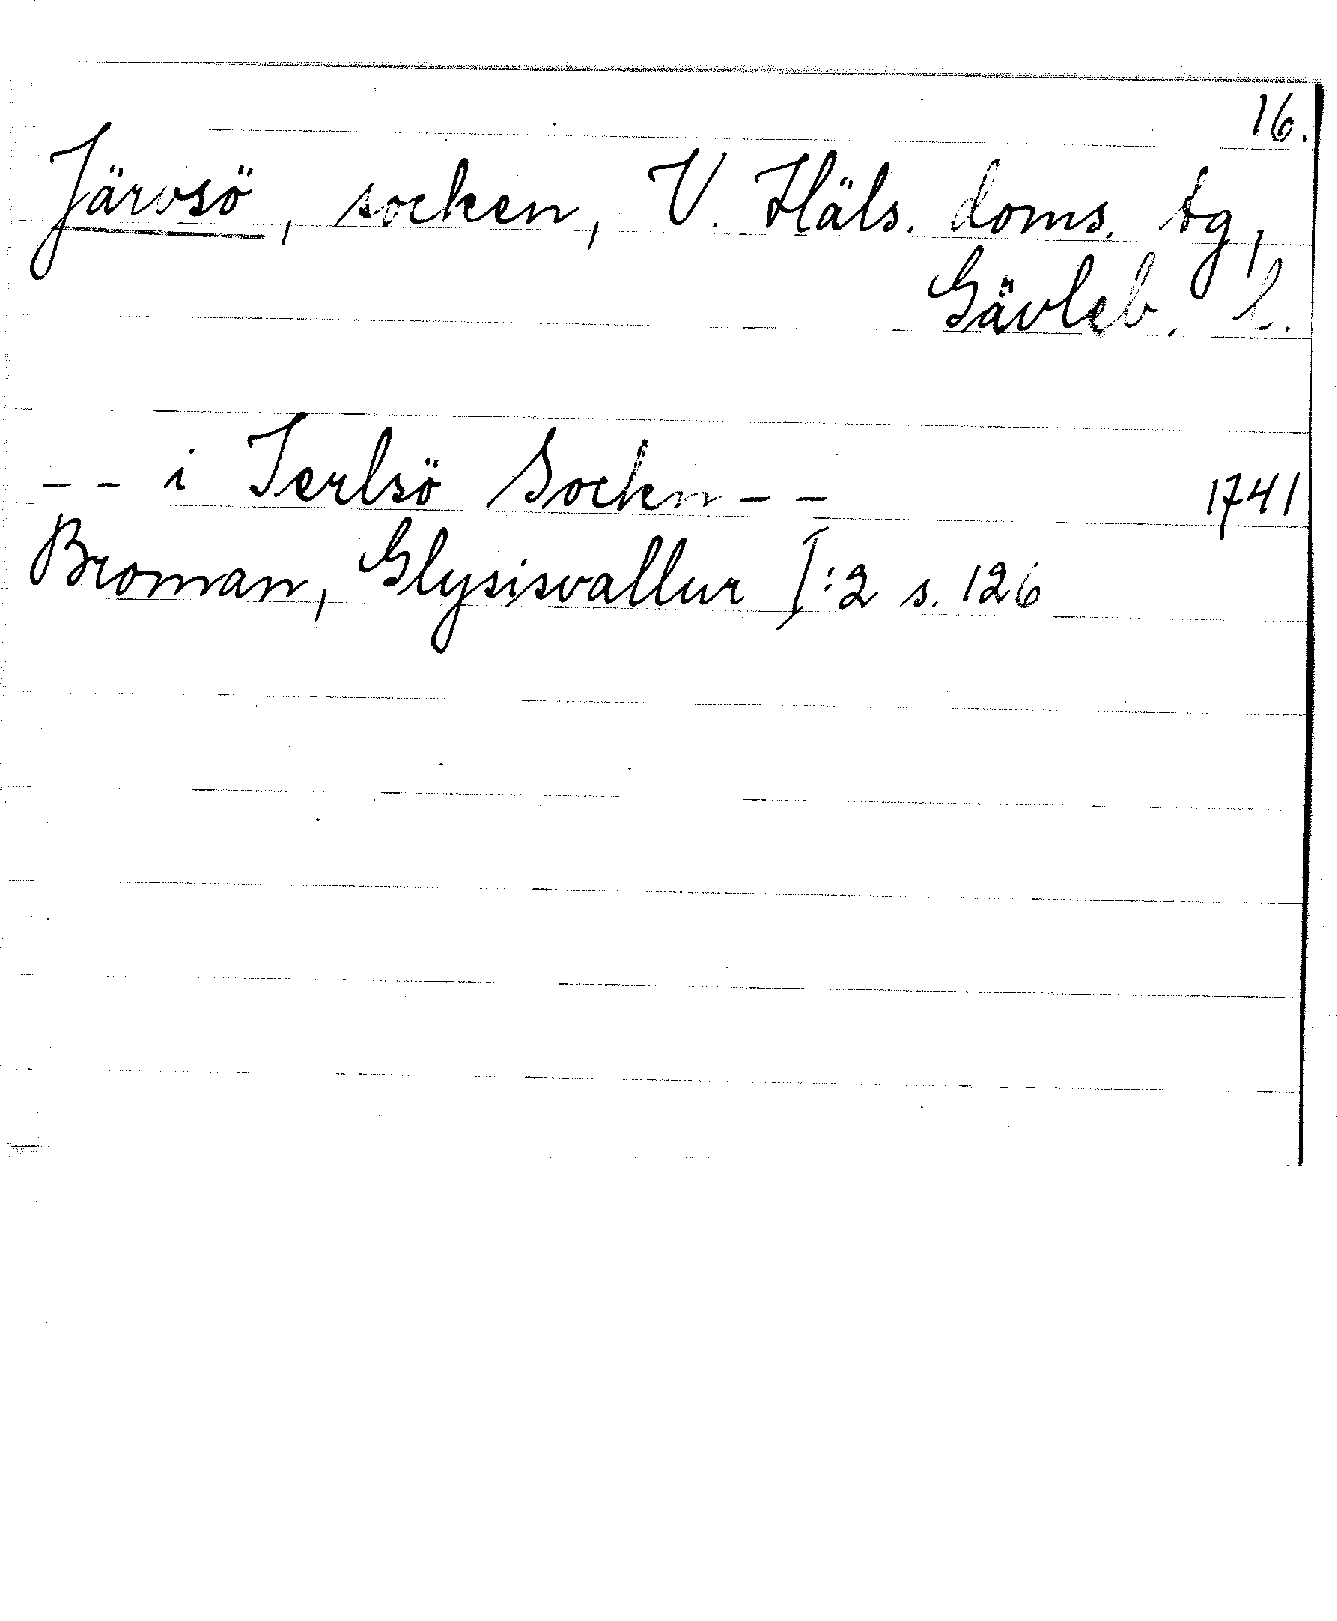 16.
Järvsö, socken, V. Häls. doms. tg,
Gävleb. l.
-- i Jerlsö Sockn -- 1741
Broman, Glysisvallur I:2 s. 126